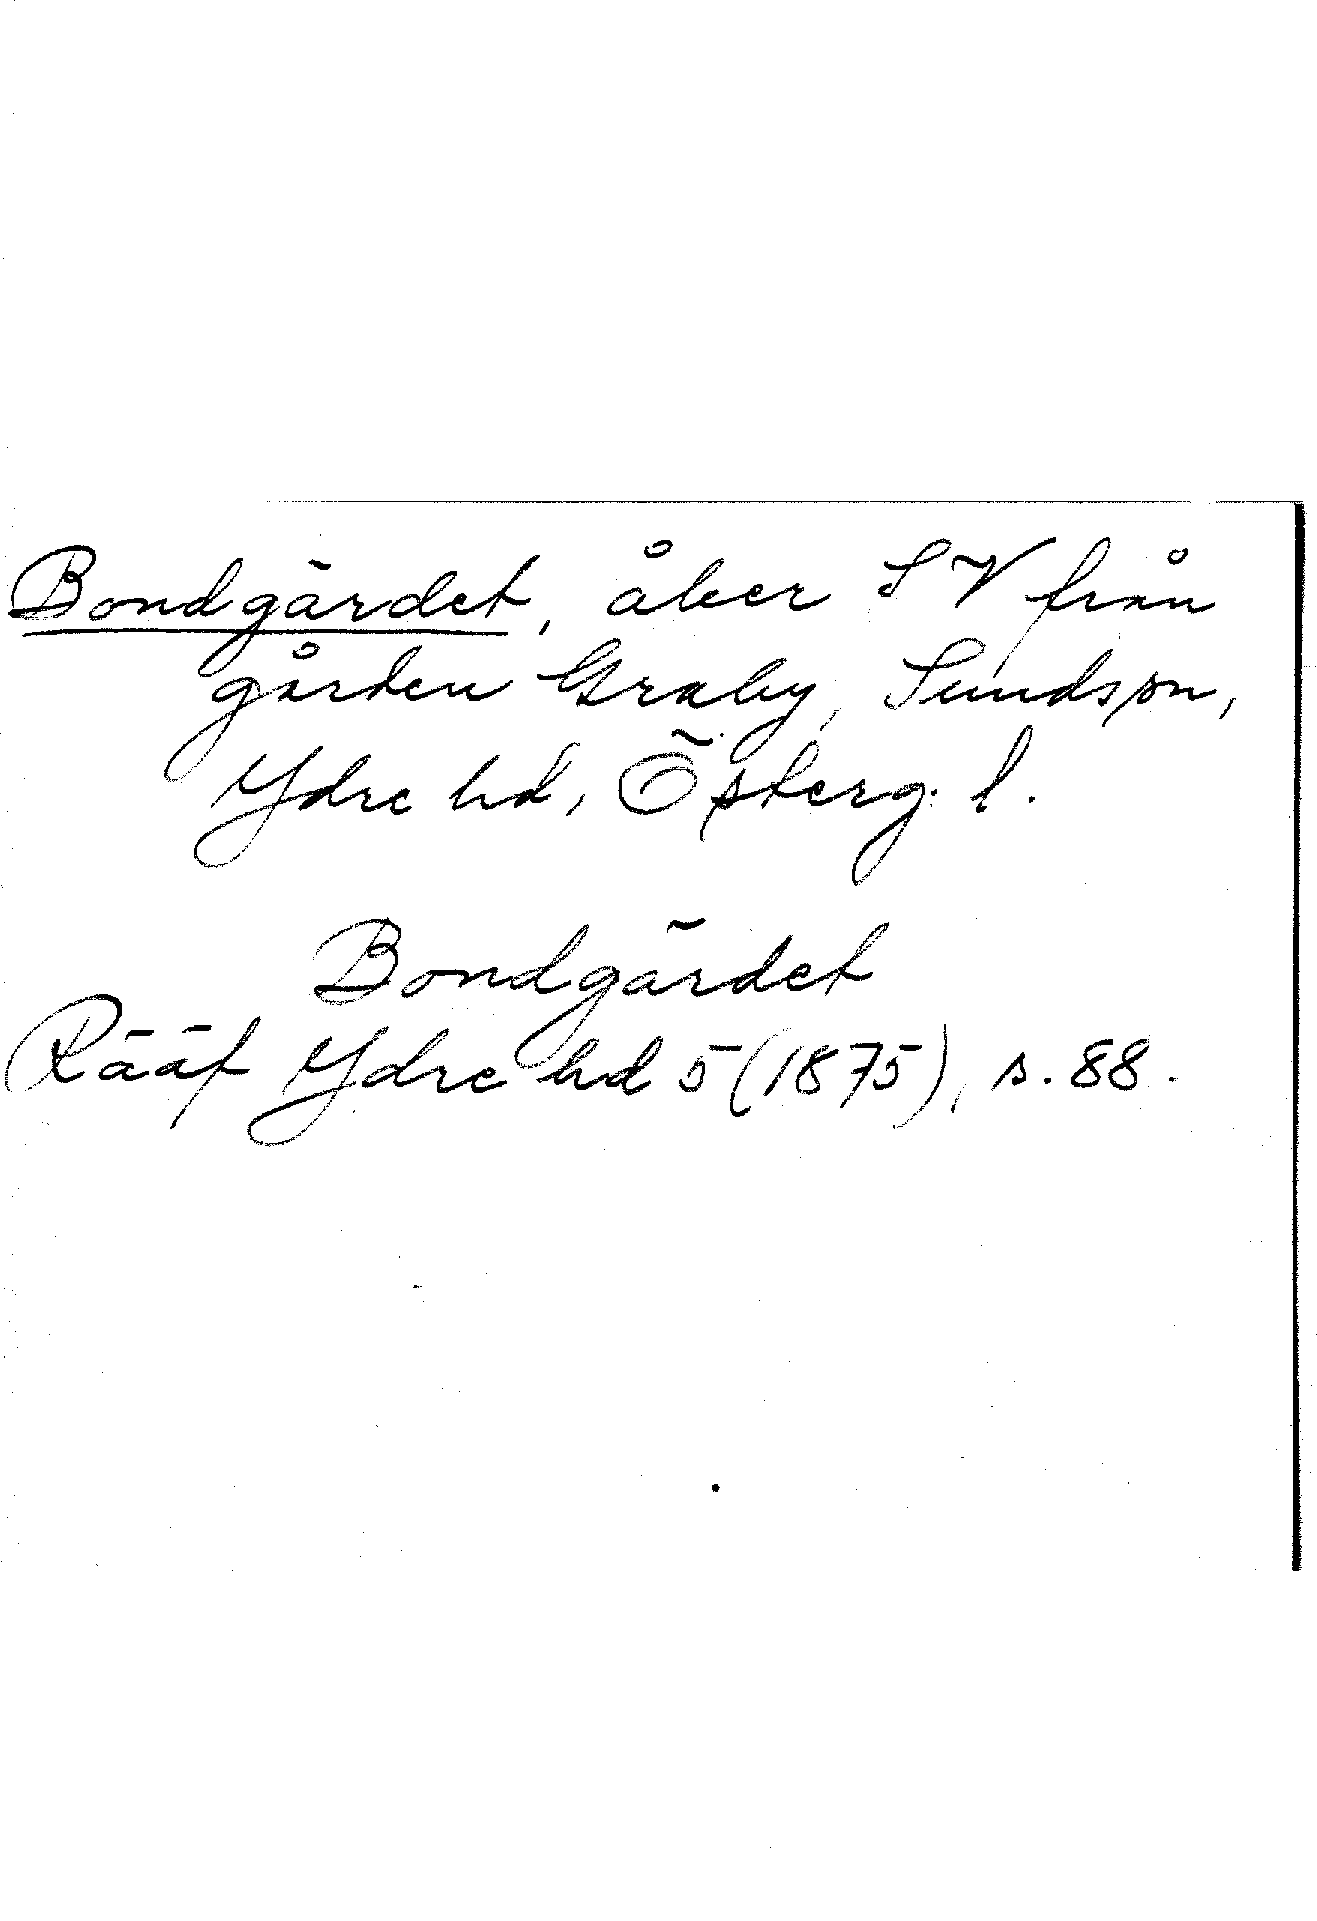 Bondgärdet, åker SV från
gården Graby, Sundsjön,
Ydre hd, Österg. l.
Bondgärdet
Rääf Ydre hd 5 (1875), s. 88.